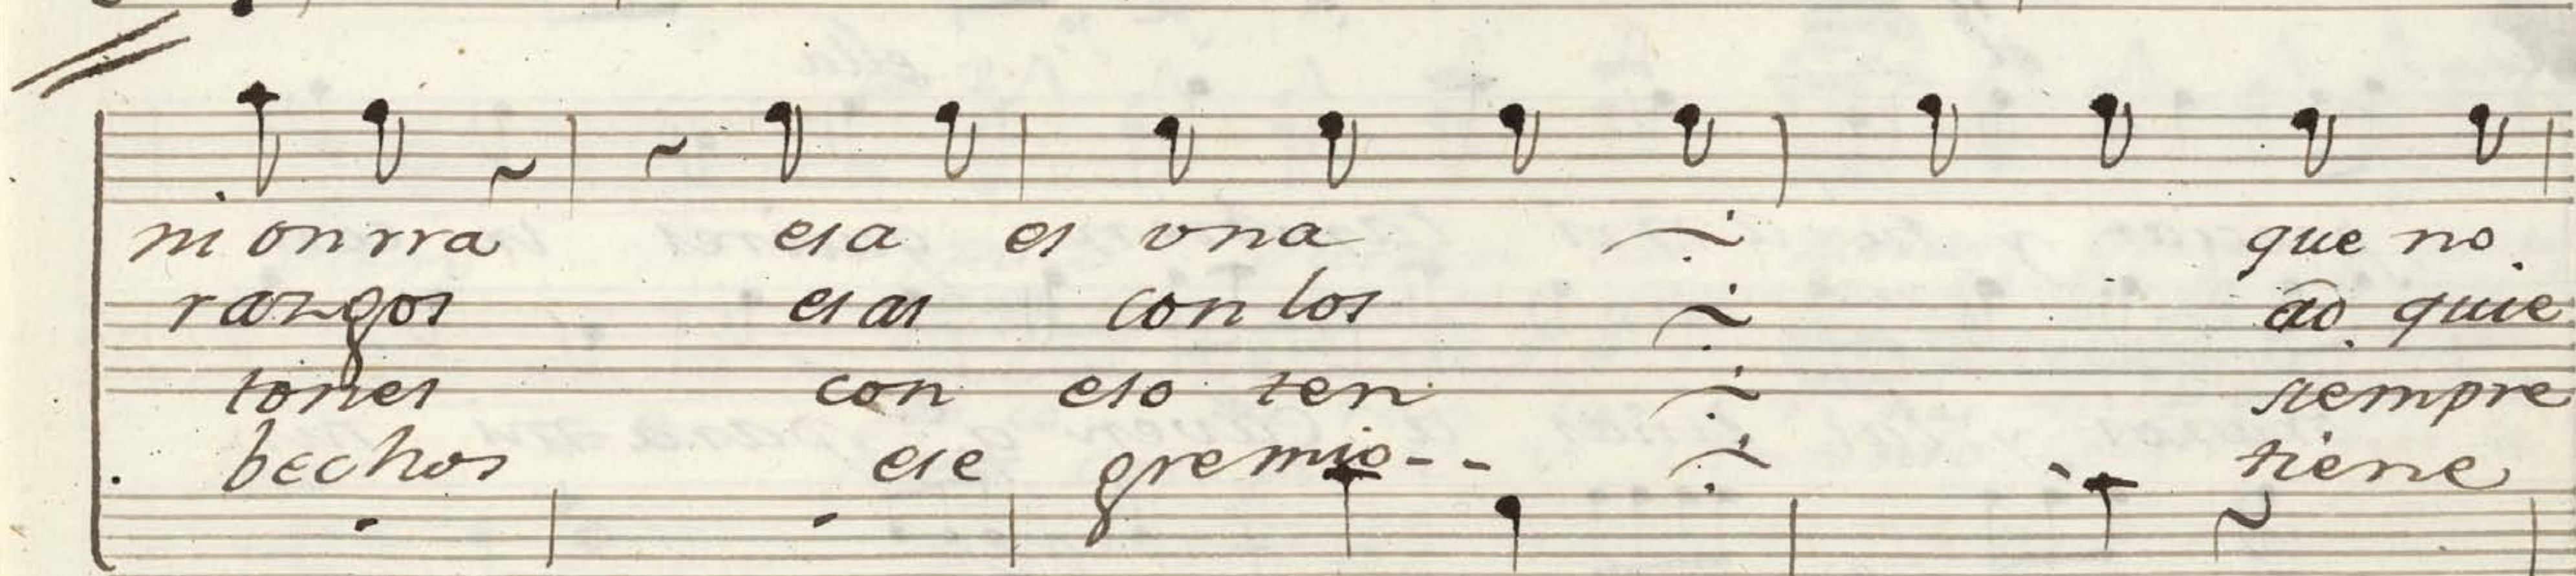 ni onrra esa es vna que no
razgos esas con los aõ quie
tones con eso ten siempre
bechos ese gremio-- tiene